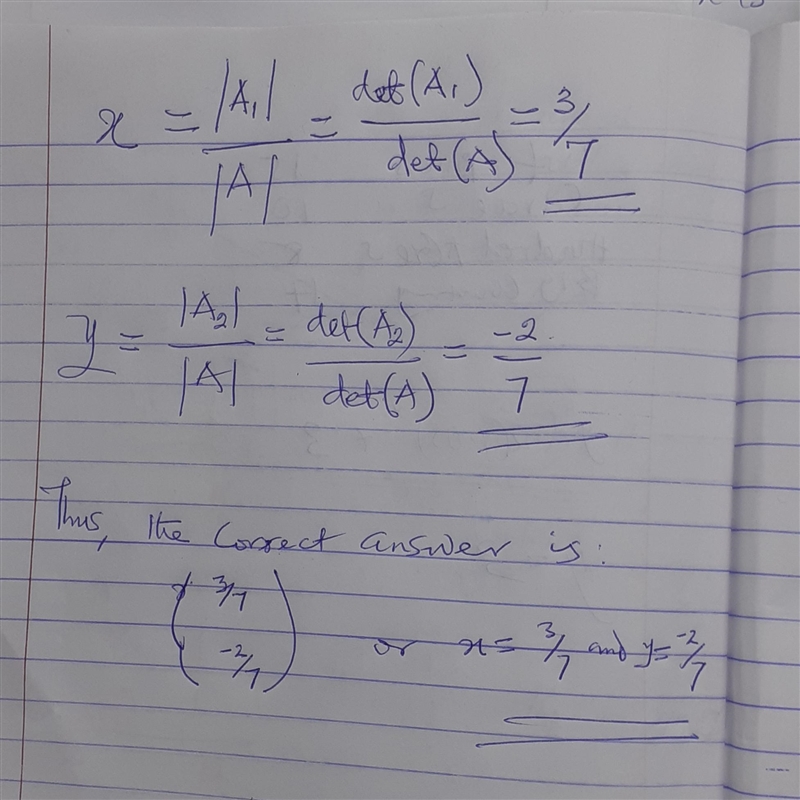 x = |A₁| / |A| = det(A₁) / det(A) = 3/7
y = |A₂| / |A| = det(A₂) / det(A) = -2/7
Thus, the correct answer is:
(3/7
-2/7) or x = 3/7 and y = -2/7